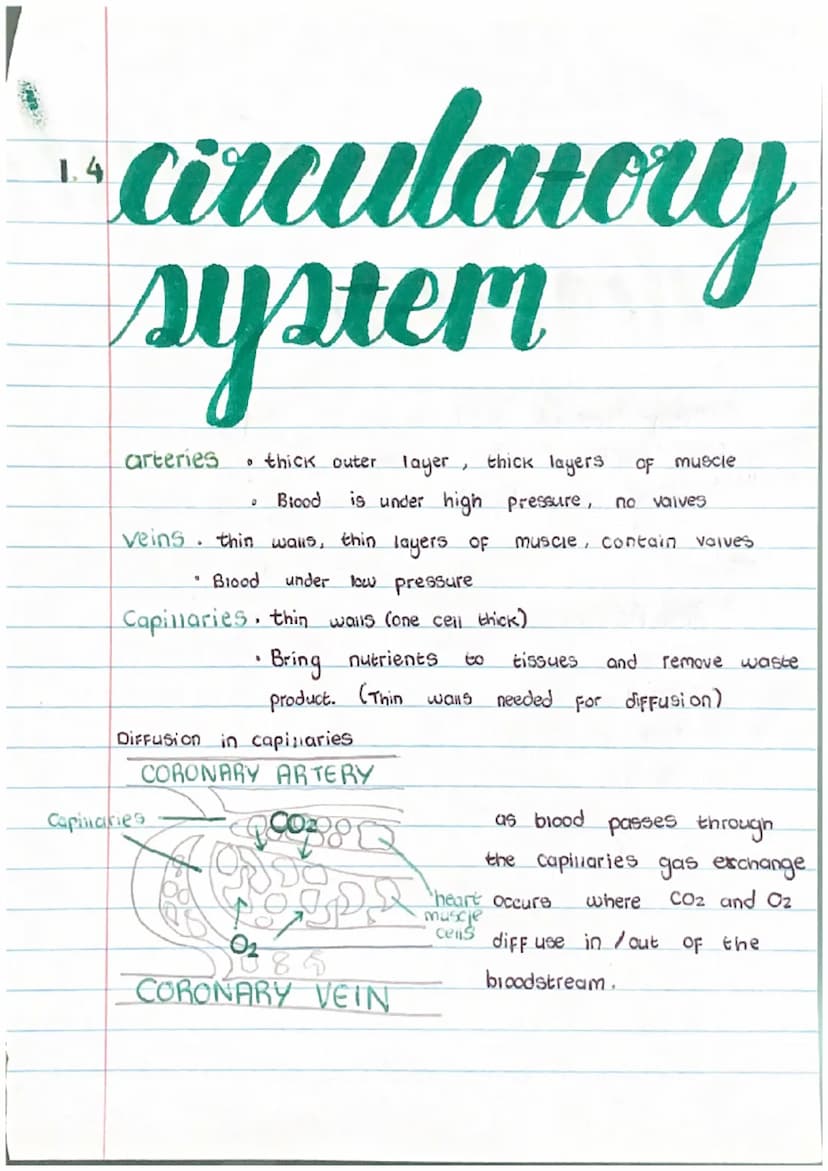 1.4 circulatory
system
arteries • thick outer layer, thick layers of muscle
• Blood is under high pressure, no valves
veins • thin walls, thin layers of muscle, contain valves
• Blood under low pressure
Capillaries • thin walls (one cell thick)
• Bring nutrients to tissues and remove waste
product. (Thin walls needed for diffusion)
Diffusion in capillaries
CORONARY ARTERY
Capillaries
CO2
heart
muscle
cells
O2
CORONARY VEIN
as blood passes through
the capillaries gas exchange
occurs where CO2 and O2
diffuse in / out of the
bloodstream.